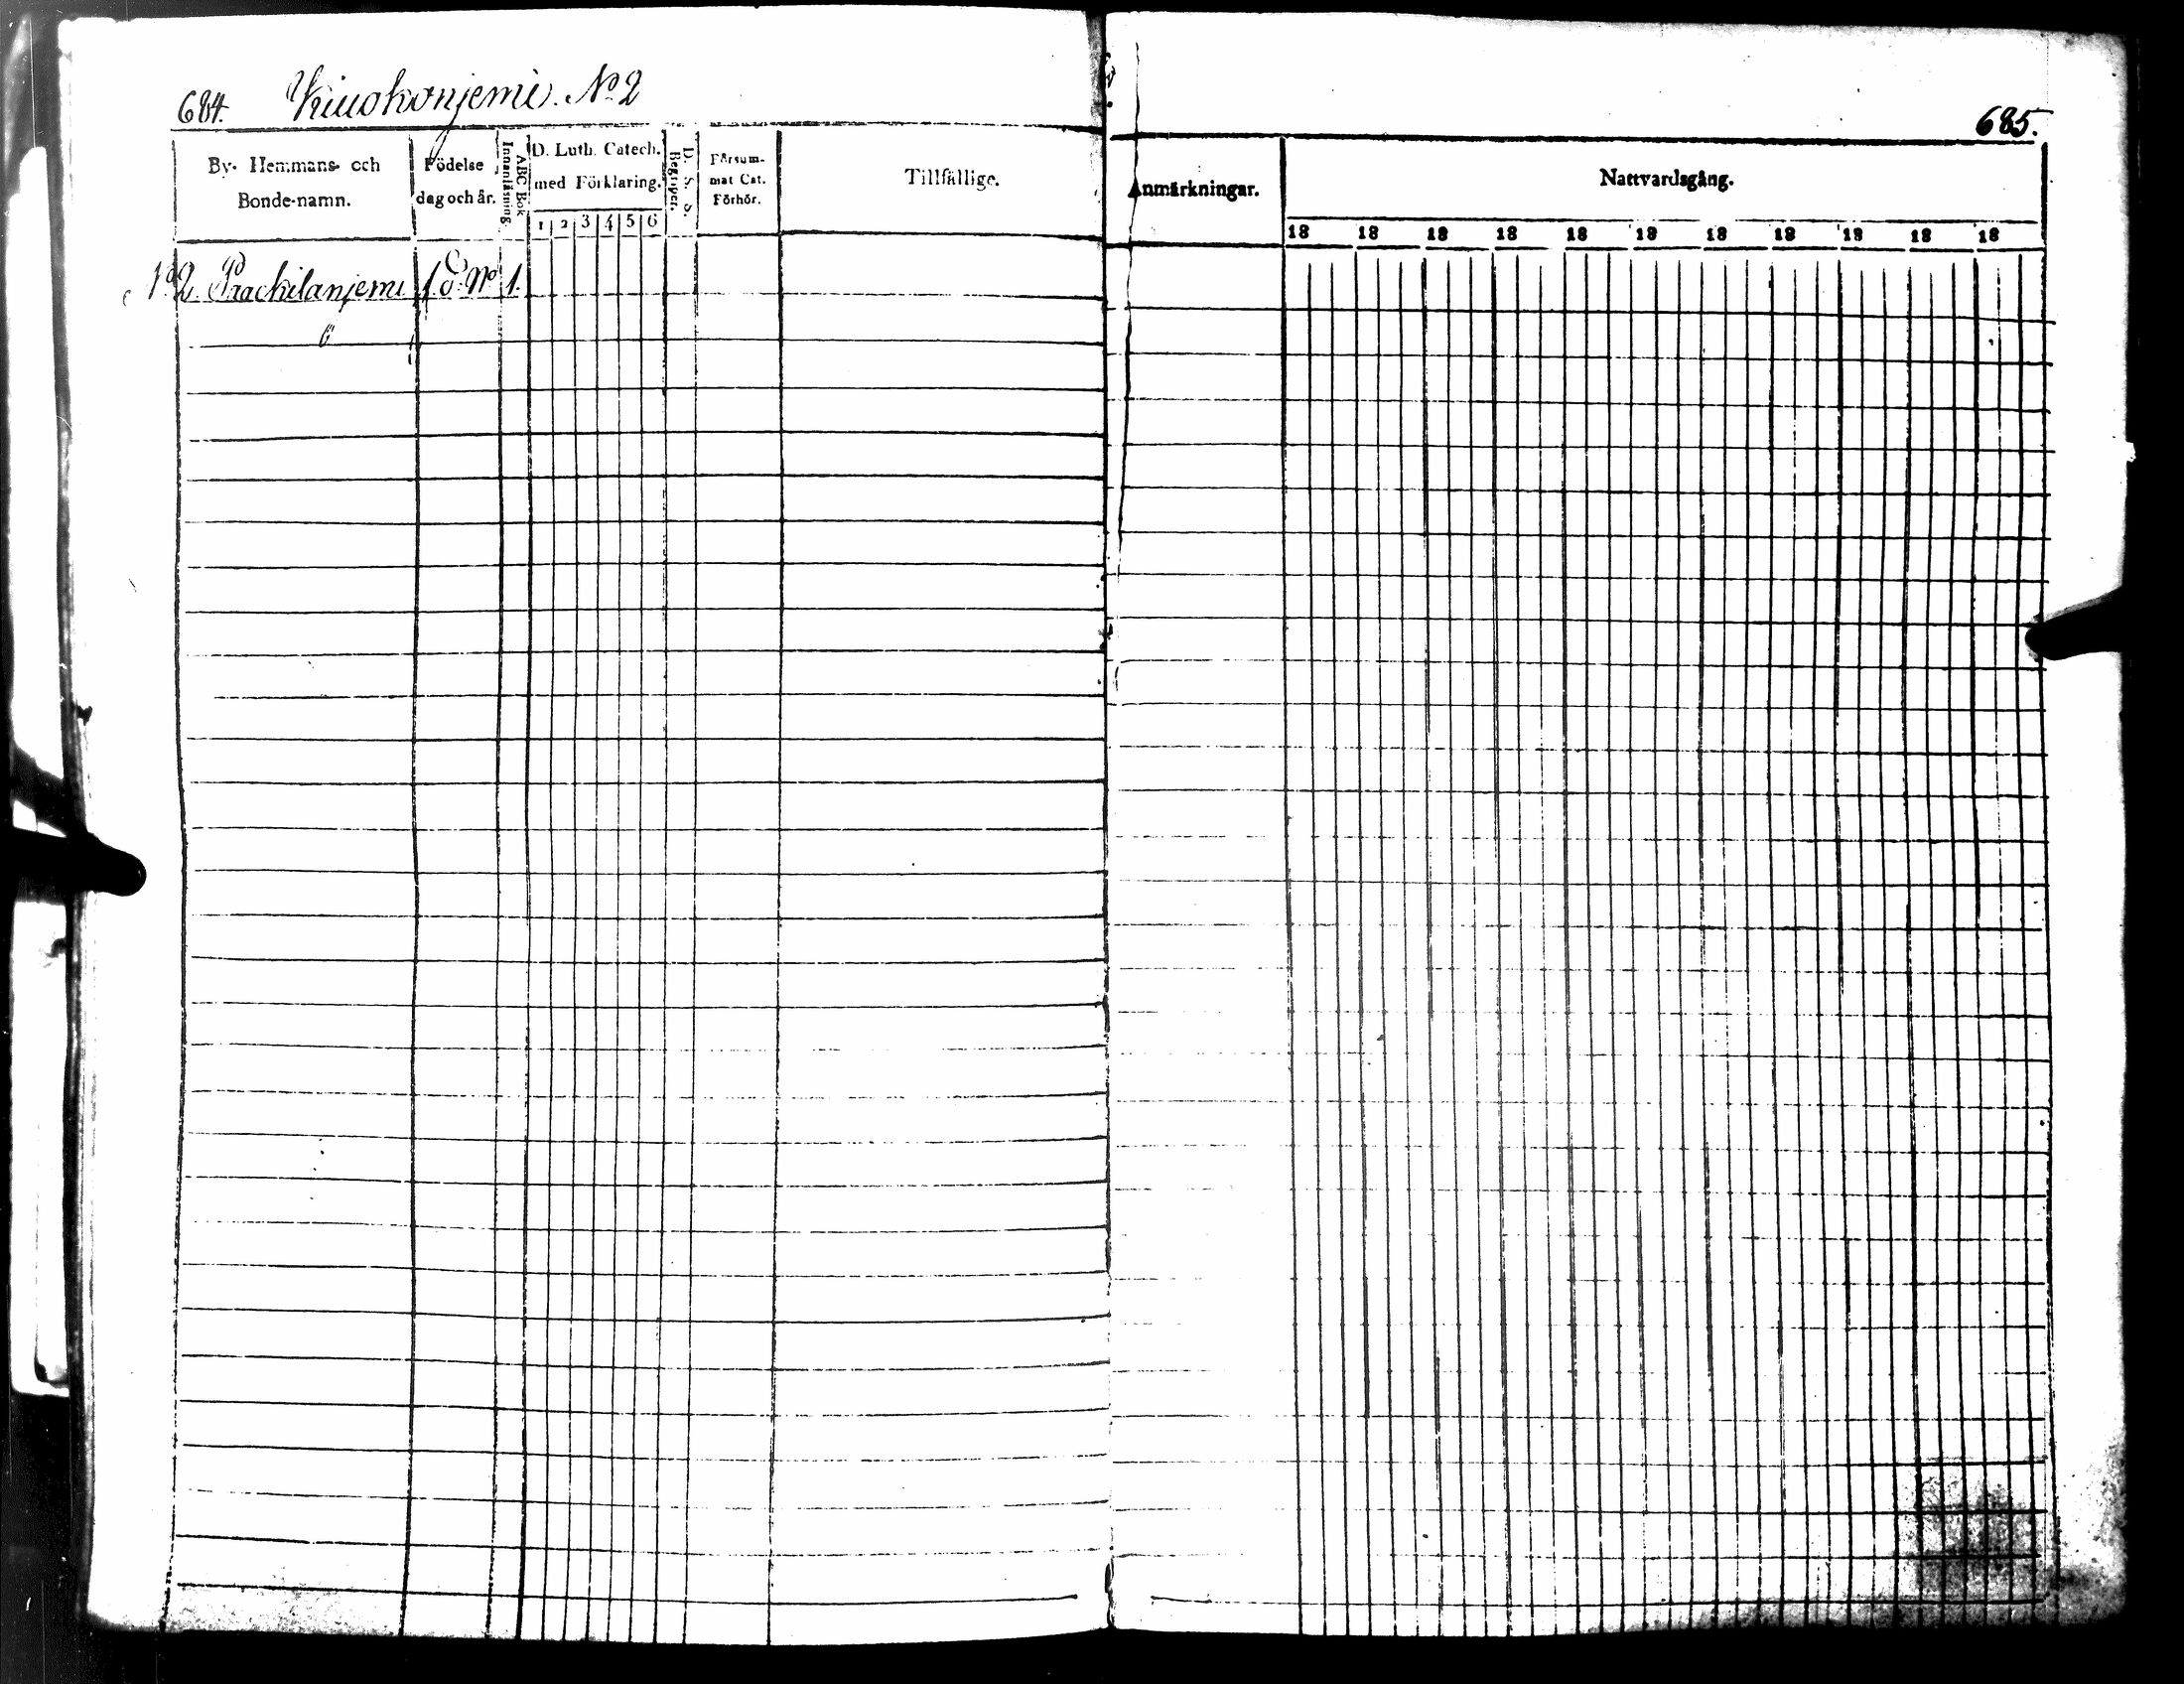 684. Kiuokonjemi. No 2
685.
By- Hemmans- och Bonde-namn.
Födelse dag och år.
ABC Bok Innanläsning.
D. Luth. Catech. med Förklaring.
1 2 3 4 5 6
D. S. S. Begriper.
Försummat Cat. Förhör.
Tillfällige.
Anmärkningar.
Nattvardsgång.
18 18 18 18 18 18 18 18 18 18 18
No 2. Praekilanjemi